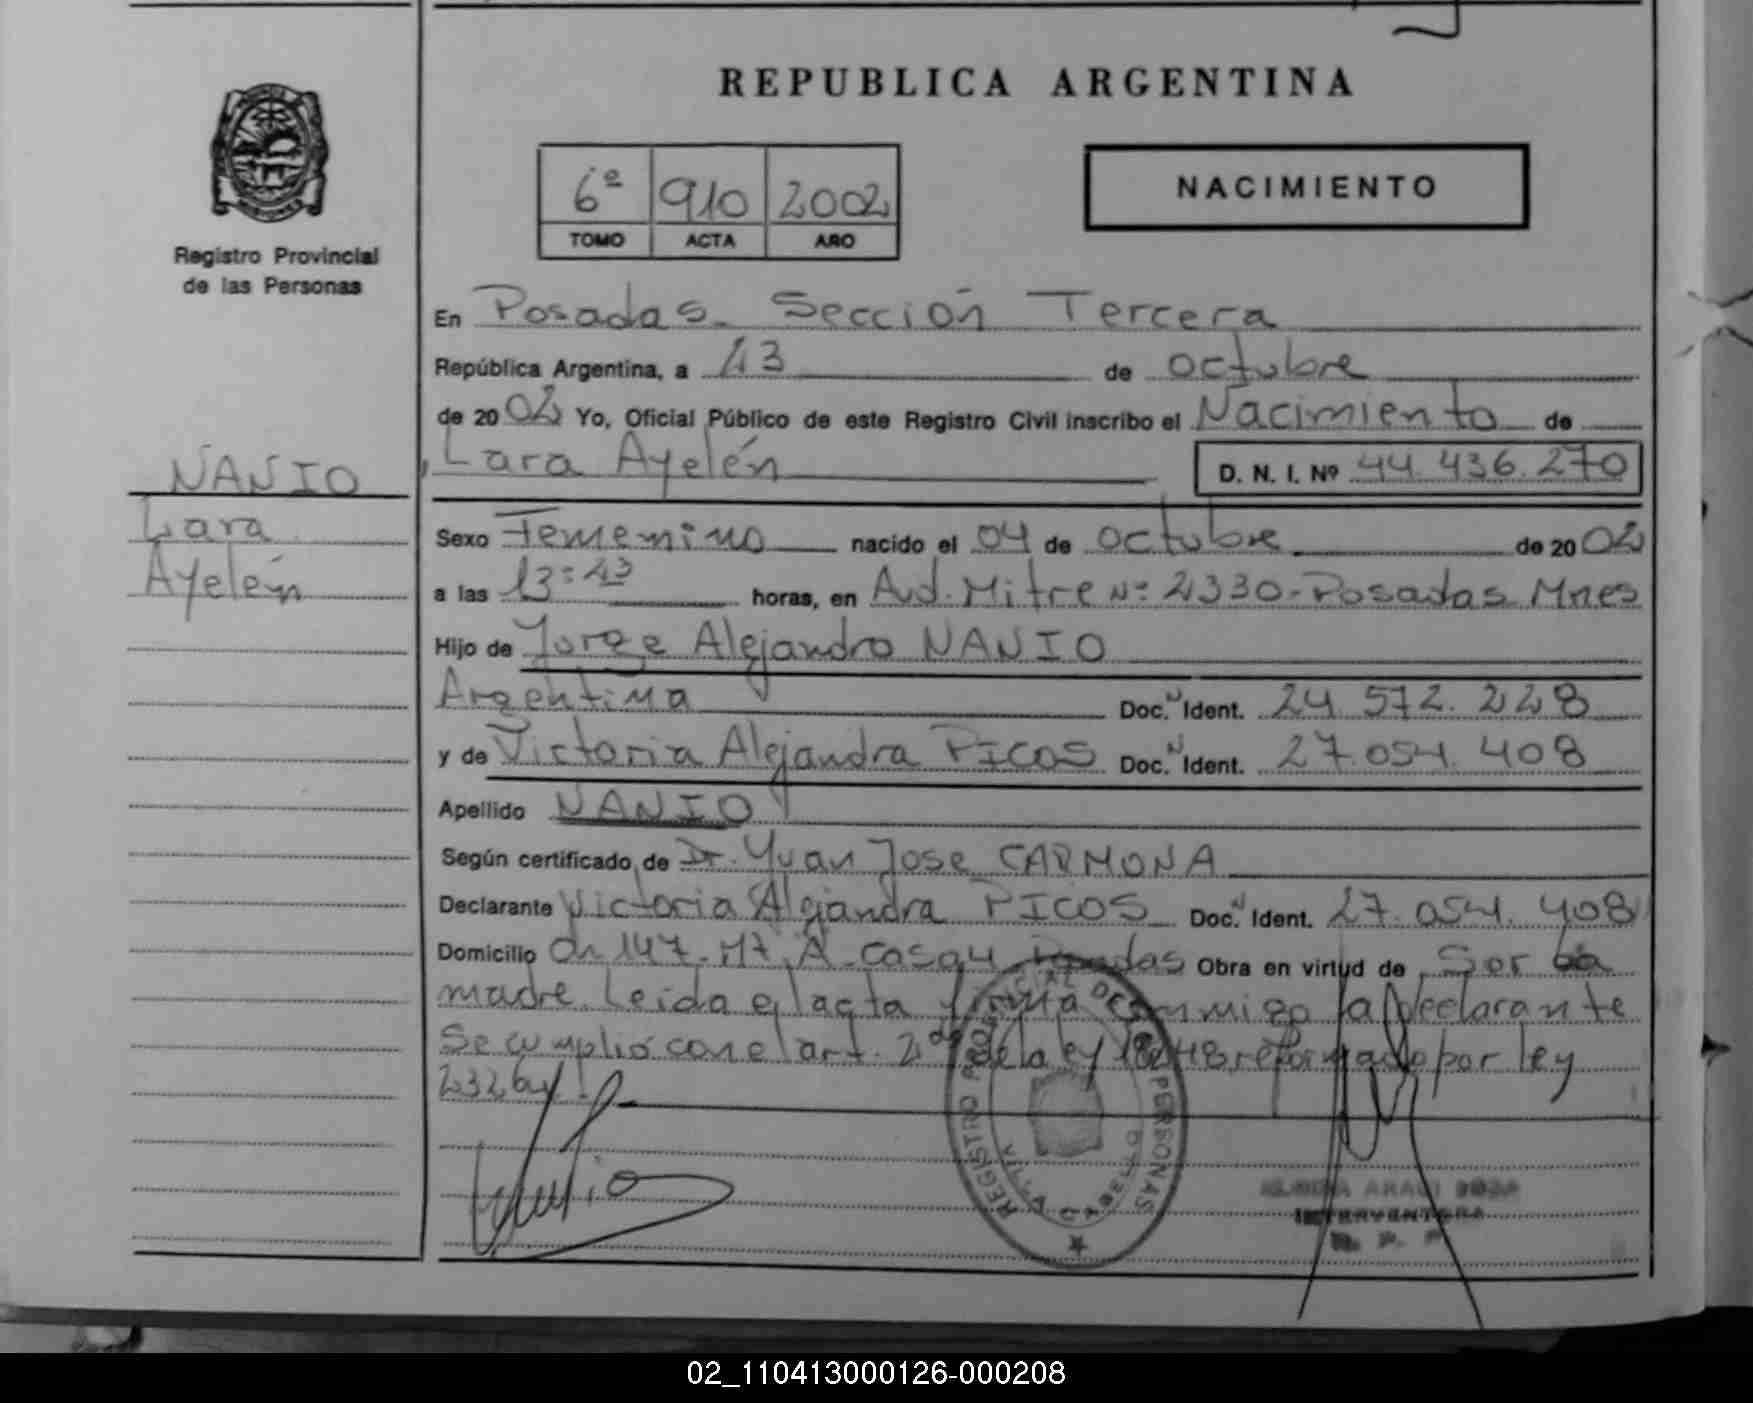 REPUBLICA ARGENTINA
6º 910 2002
TOMO ACTA AÑO
NACIMIENTO
Registro Provincial
de las Personas
En Posadas Sección Tercera
República Argentina, a 13 de octubre
de 2002 Yo, Oficial Público de este Registro Civil inscribo el Nacimiento de
Lara Ayelén D. N. I. Nº 44.436.270
NANIO
Lara
Ayelén
Sexo Femenino nacido el 04 de octubre de 2002
a las 13:43 horas, en Avd. Mitre Nº 2330-Posadas Mnes
Hijo de Jorge Alejandro NANIO
Argentina Doc. Ident. 24.572.228
y de Victoria Alejandra PICOS Doc. Ident. 27.054.408
Apellido NANIO
Según certificado de Dr. Yuan Jose CARMONA
Declarante Victoria Alejandra PICOS Doc. Ident. 27.054.408
Domicilio Ch 147-Mz A casa 4 Posadas Obra en virtud de Ser la
madre. Leida el acta firma conmigo la declarante
Se cumplió con el art. 2º de la ley 18248 reformado por ley
23264
REGISTRO PROVINCIAL DE LAS PERSONAS
INTERVENTORA
R. P. P.
02_110413000126-000208